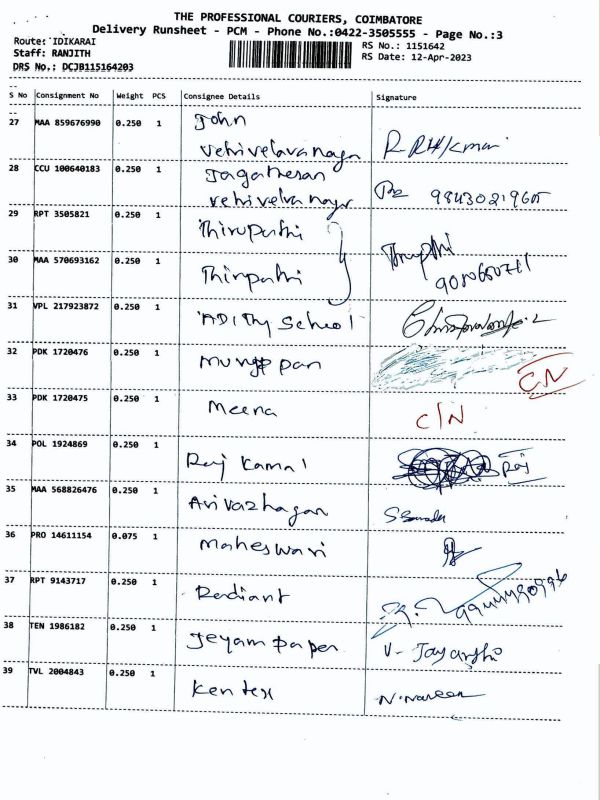 THE PROFESSIONAL COURIERS, COIMBATORE
Delivery Runsheet - PCM - Phone No.:0422-3505555 - Page No.:3
Route: IDIKARAI
Staff: RANJITH
DRS No.: DCJB115164203
RS No.: 1151642
RS Date: 12-Apr-2023
S No Consignment No Weight PCS Consignee Details Signature
27 MAA 859676990 0.250 1 John
28 CCU 100640183 0.250 1 Jaganesan 9843021960
29 RPT 3505821 0.250 1 Thirupathi
30 MAA 570693162 0.250 1 Thirpathi
31 VPL 217923872 0.250 1 ADITHY School
32 PDK 1720476 0.250 1 CN
33 PDK 1720475 0.250 1 Meena C/N
34 POL 1924869 0.250 1 Raj Kamal Raj
35 MAA 568826476 0.250 1 Arivazhagan
36 PRO 14611154 0.075 1 Maheswari
37 RPT 9143717 0.250 1 Radiant
38 TEN 1986182 0.250 1 Jeyam paper
39 TVL 2004843 0.250 1 Kentex N.Naveen